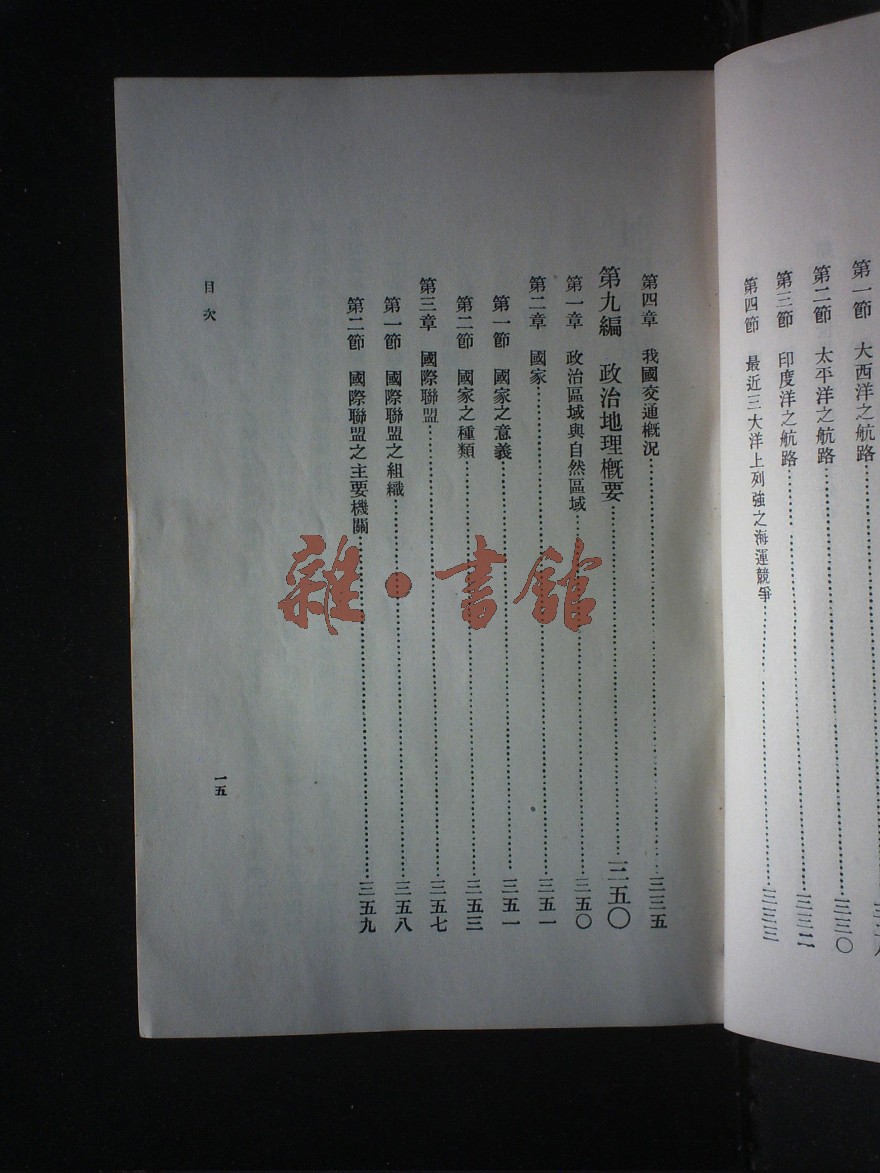 第一節　大西洋之航路
第二節　太平洋之航路……三三〇
第三節　印度洋之航路……三三二
第四節　最近三大洋上列強之海運競爭……三三三
第四章　我國交通概況……三三五
第九編　政治地理概要……三五〇
第一章　政治區域與自然區域……三五〇
第二章　國家……三五一
第一節　國家之意義……三五一
第二節　國家之種類……三五三
第三章　國際聯盟……三五七
第一節　國際聯盟之組織……三五八
第二節　國際聯盟之主要機關……三五九
目次
一五
雜·書館